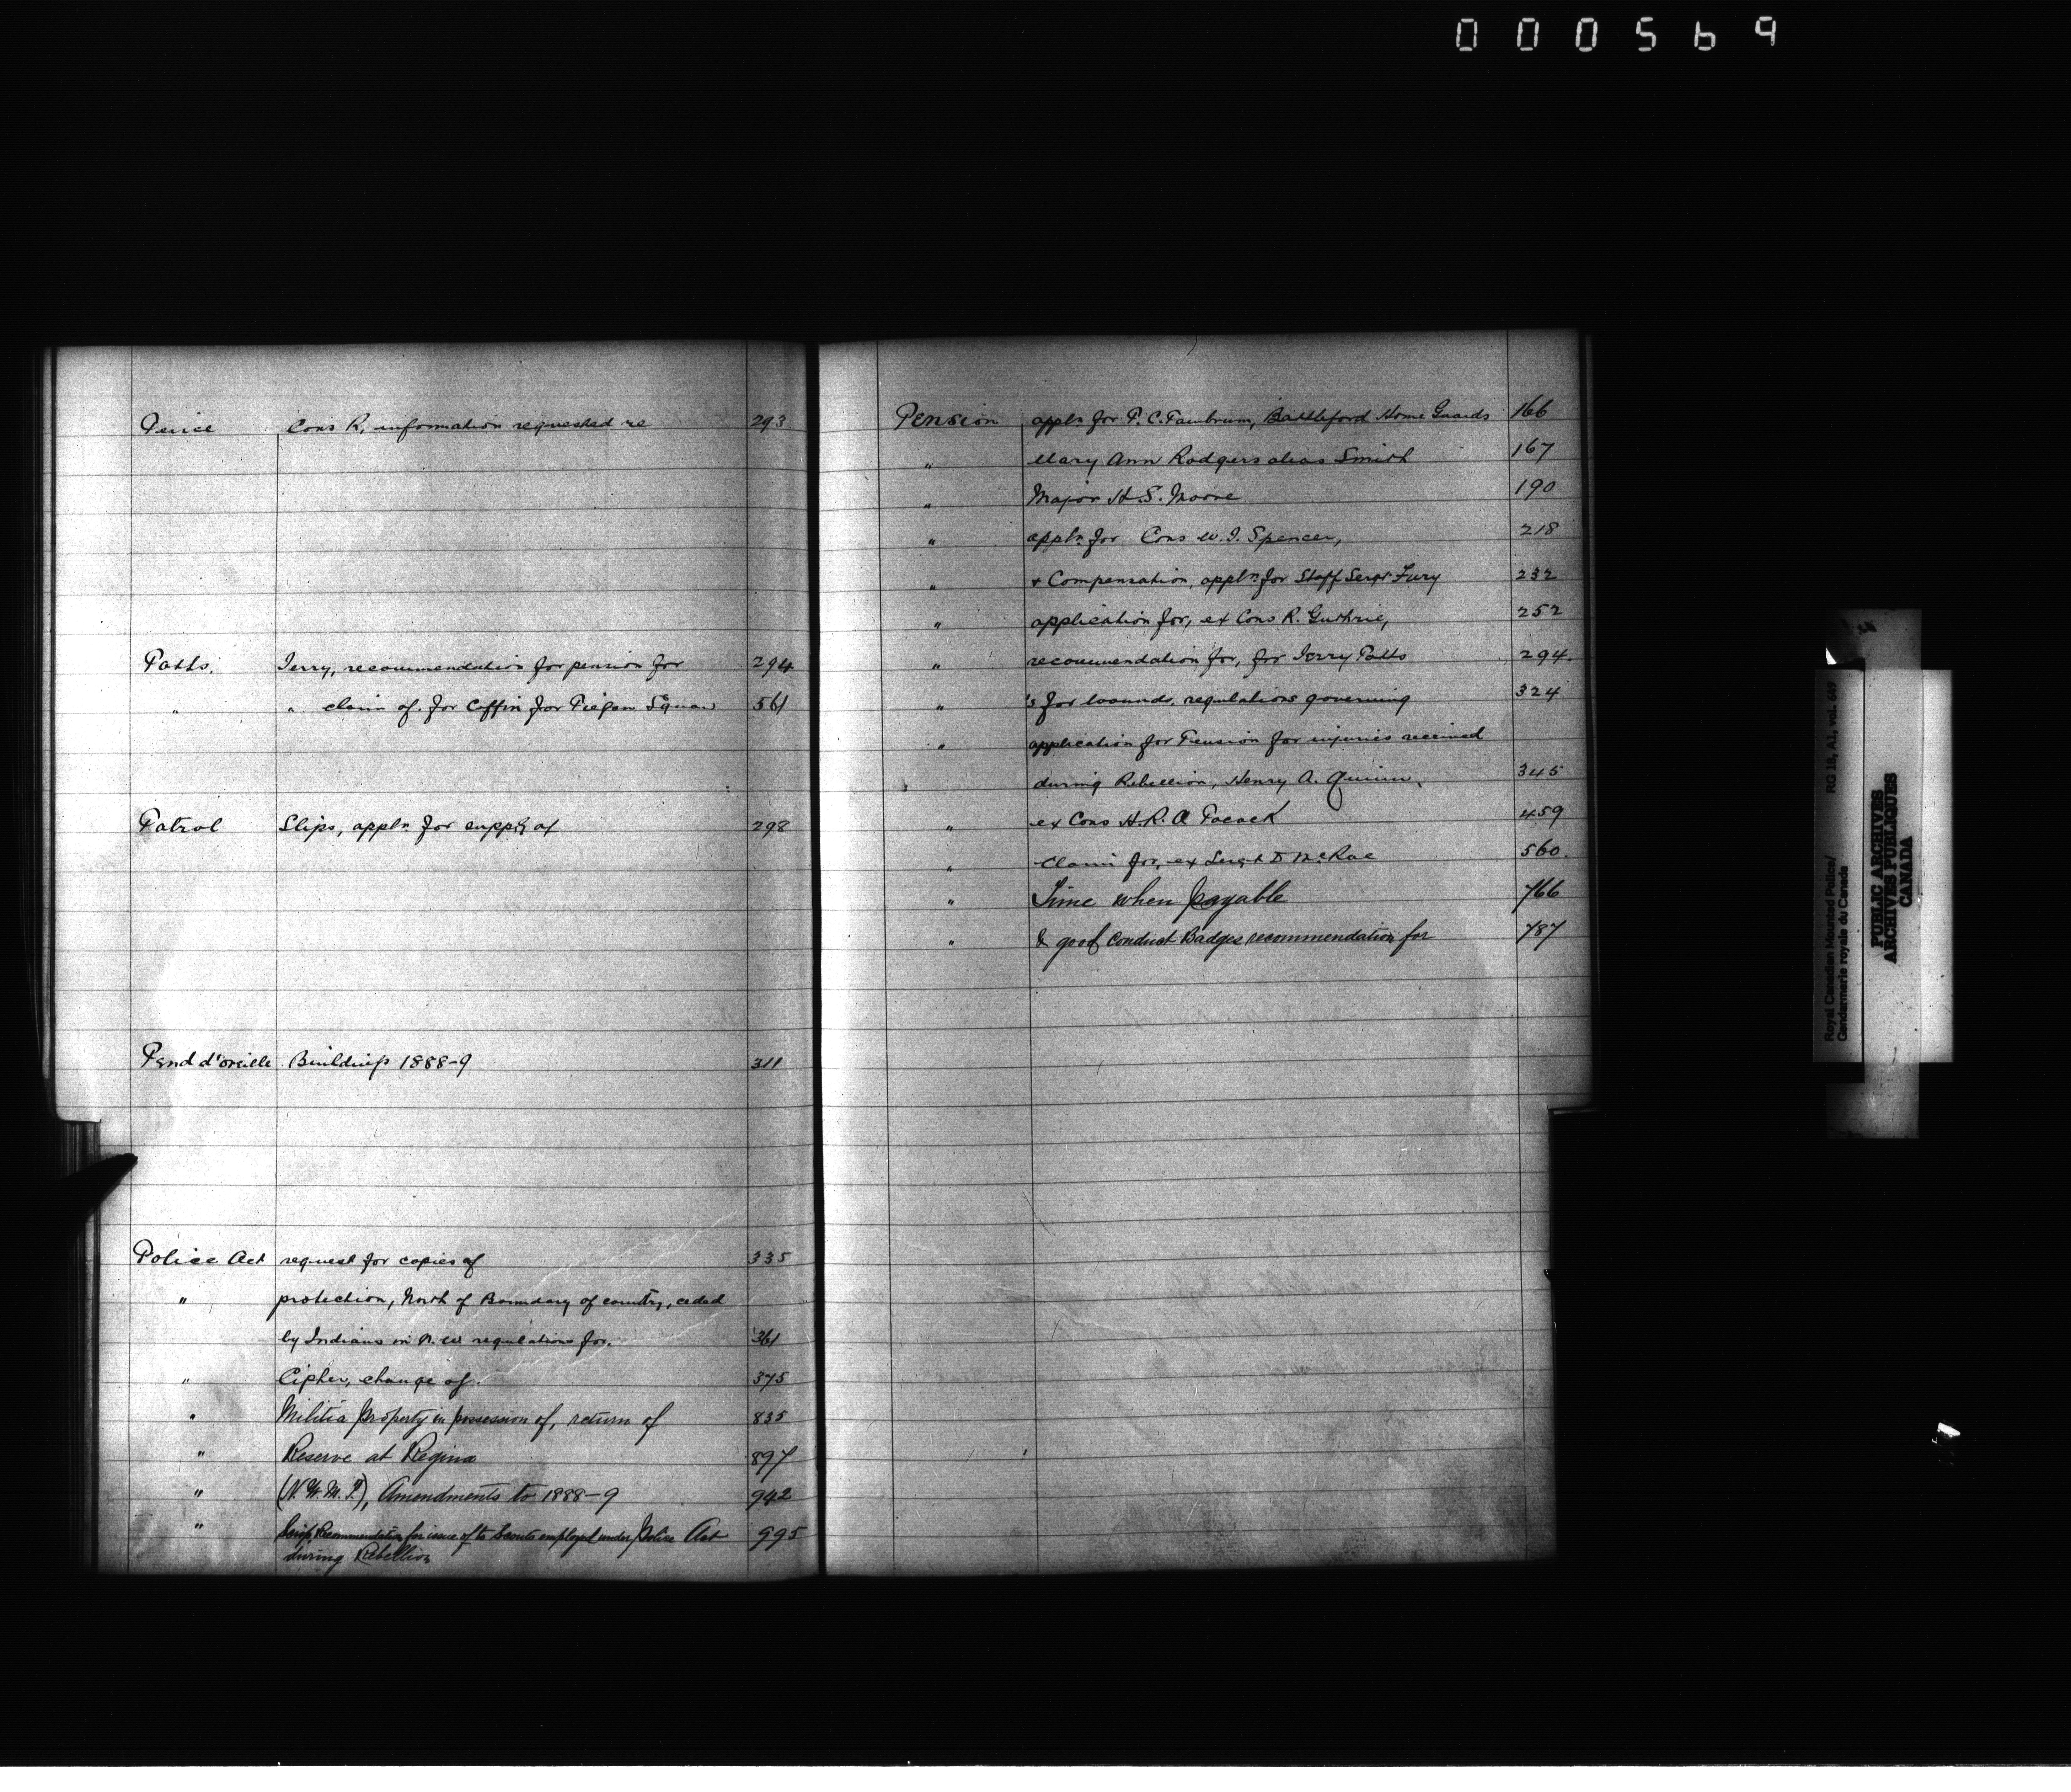 000569
Cons R, information requested re 293
Potts. Jerry, recommendation for pension for 294
" " claim of. for Coffin for Piegan Squaw 561
Patrol Slips, appln for supply of 298
Pend d'oreille Buildings 1888-9 311
Police Act request for copies of 335
" protection, North of Boundary of country, ceded
by Indians in N.W regulations for. 361
" Cipher, change of. 375
" Militia Property in possession of, return of 835
" Reserve at Regina 897
" (N.W.M.P.), Amendments to 1888-9 942
" Scrip Recommendation for issue of to Scouts employed under Police Act 995
during Rebellion
Pension appln for P.C. Battleford Home Guards 166
" Mary Ann Rodgers alias Smith 167
" Major H.S. Moore 190
" appln for Cons W.J. Spencer, 218
" & Compensation, appln for Staff Sergt Fury 232
" application for, ex Cons R. Guthrie, 252
" recommendation for, for Jerry Potts 294.
" 's for wounds, regulations governing 324
" application for Pension for injuries received
during Rebellion, Henry A. Quinn, 345
" ex Cons H.R.A Pocock 459
" Claim for, ex Sergt D McRae 560.
" Time when payable 766
" & good Conduct Badges recommendation for 787
Royal Canadian Mounted Police/
Gendarmerie royale du Canada
RG 18, A1, vol. 649
PUBLIC ARCHIVES
ARCHIVES PUBLIQUES
CANADA